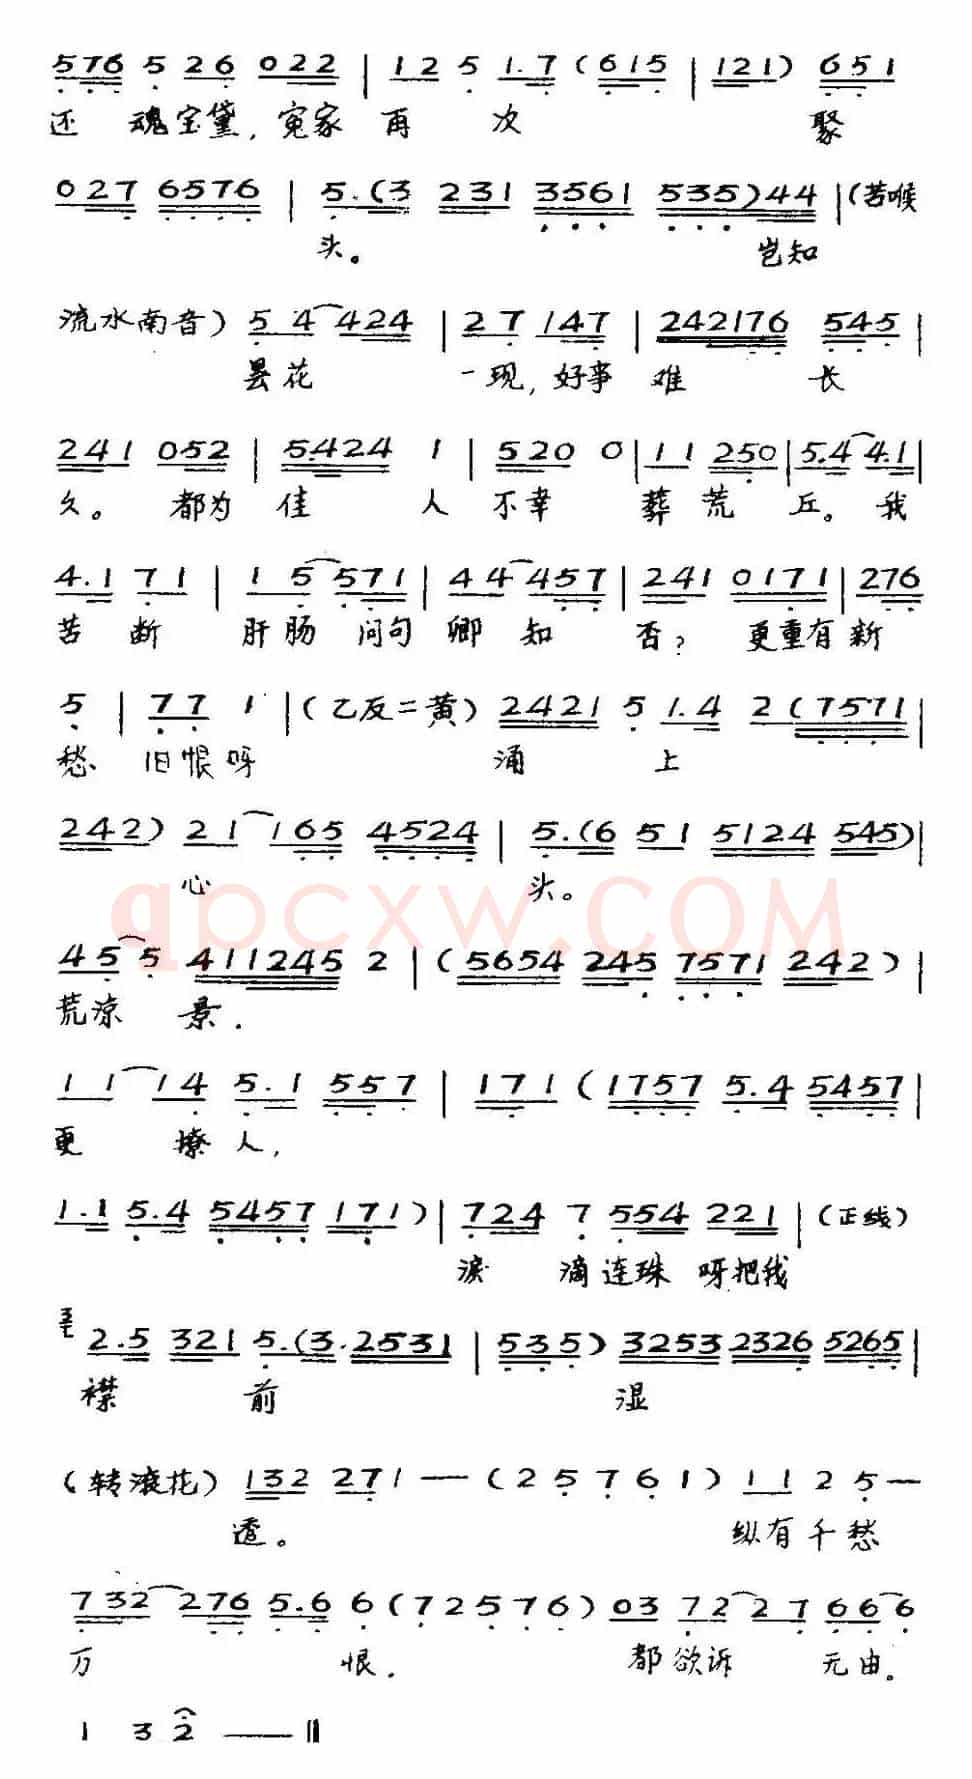 576 5 26 022 | 125 1.7 (615 | 121) 651
还 魂宝黛,冤家 再 次 聚
027 6576 | 5.(3 231 3561 535)44 | (苦喉
头。 岂知
流水南音) 54 424 | 27 147 | 242176 545 |
昙花 一现,好事 难 长
241 052 | 5.424 1 | 520 0 | 11 250 | 5.4 4.1 |
久。 都为 佳 人 不幸 葬荒 丘。我
4.1 71 | 15 571 | 44 457 | 241 0171 | 276
苦 断 肝肠 问句 卿 知 否? 更重有新
5 | 77 1 | (乙反二黄) 2421 5 1.4 2 (7571 |
愁 旧恨呀 涌 上
242) 21 165 4524 | 5.(6 51 5124 545) |
心 头。
qpcxw.COM
45 5 411245 2 | (5654 245 7571 242) |
荒凉 景.
11 14 5.1 557 | 171 (1757 5.4 5457 |
更 撩人,
1.1 5.4 5457 171) | 724 7 554 221 | (正线)
泪 滴连珠 呀把我
2.5 321 5.(3.2531 | 535) 3253 2326 5265 |
襟 前 湿
(转滚花) 132 271 — (25761) 11 2 5 —
透。 纵有千愁
732 276 5.6 6 (72576) 03 72 27 66 6
万 恨. 都欲诉 无由。
1 3 2 —— ‖